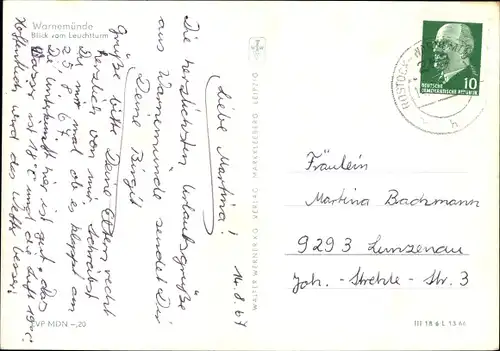 Warnemünde
Blick vom Leuchtturm
14.8.67
Liebe Martina!
Die herzlichsten Urlaubsgrüße
aus Warnemünde sendet Dir
Deine Birgit
Grüße bitte Deine Eltern recht
herzlich von mir. Schreibst
Du mir mal ob es klappt am
25.8.67.
Die Unterkunft hier ist gut, das
Wasser ist 18°C und die Luft 19°C.
Hoffentlich wird das Wetter besser.
EVP MDN -,20
WALTER WARNER KG VERLAG MARKKLEEBERG LEIPZIG
ROSTOCK
DEUTSCHE
DEMOKRATISCHE REPUBLIK
10
Fräulein
Martina Bachmann
9293 Lunzenau
Joh.-Strehle-Str. 3
III 18 6 L 13 66